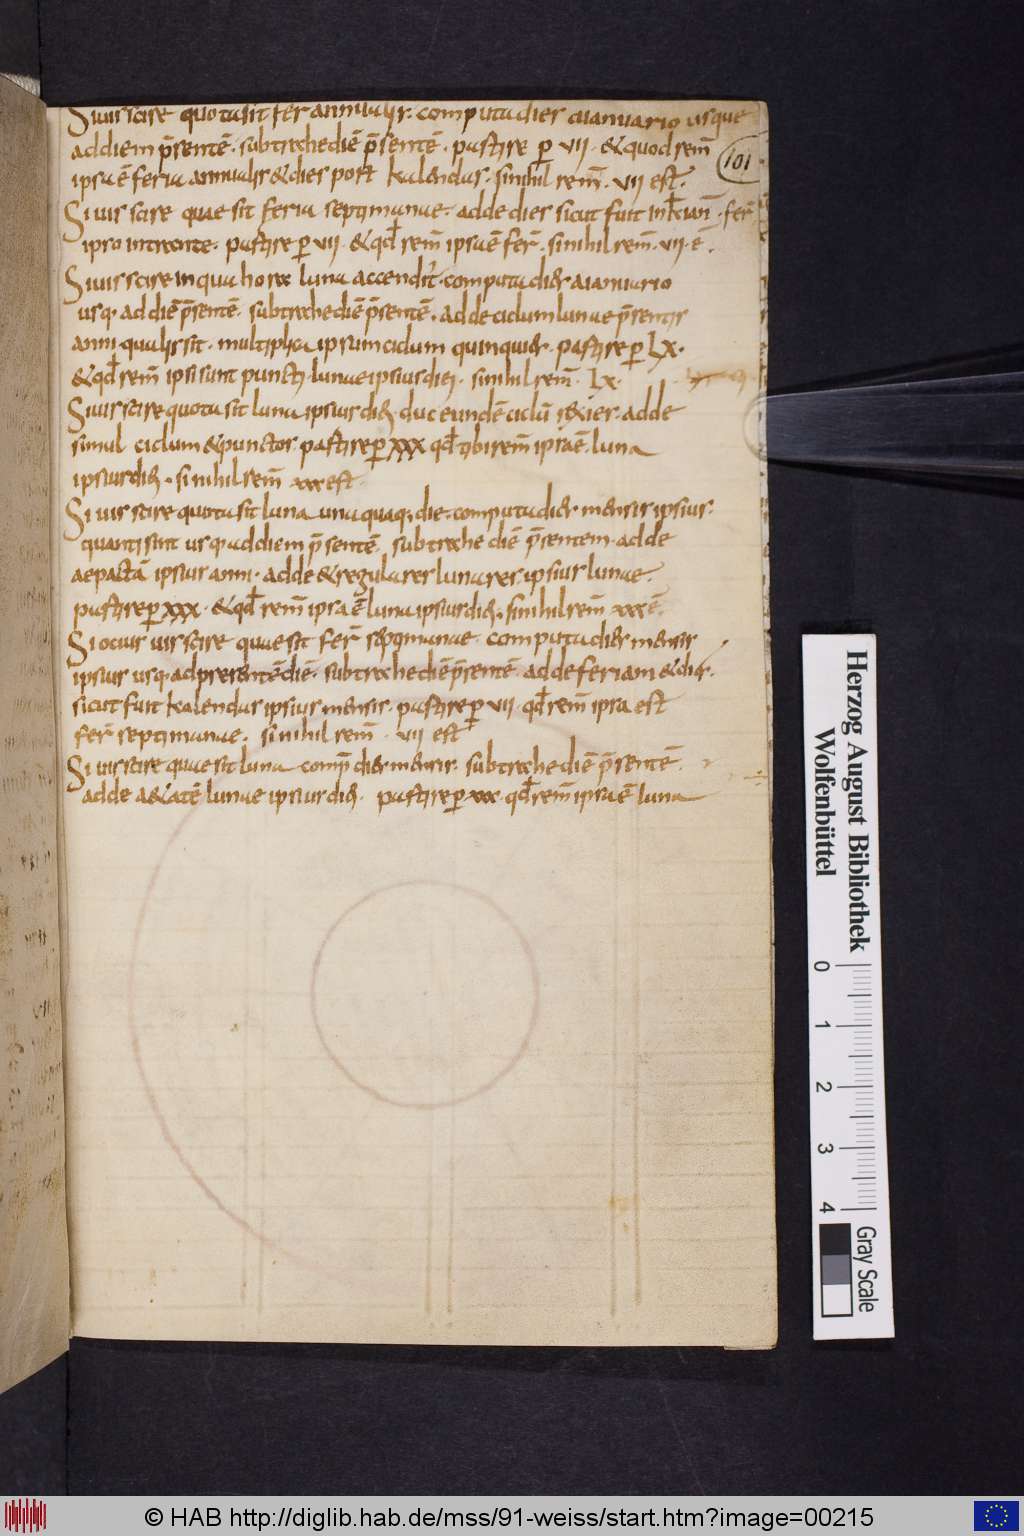 Siuis scire quota sit fer annualis. computa dies a ianuario usque
ad diem p̄sentē. subtrahe diē p̄sentē. partire ꝑ vii. & quod rem̄
101
ipsa ē feria annualis & dies post kalendas. si nihil rem̄. vii est.
Si uis scire quae sit feria septimanae. adde dies sicut fuit in kl ian̄. fer̄
ipso intrante. partire ꝑ vii. & qd rem̄ ipsa ē fer̄. si nihil rem̄. vii. ē.
Si uis scire in qua hora luna accendit̄. computa dies a ianuario
usq. ad diē p̄sentē. subtrahe diē p̄sentē. adde ciclum lunae p̄sentis
anni. qualis sit. multiplica ipsum ciclum quinquies. partire ꝑ Lx.
& qd rem̄ ipsi sunt puncti lunae ipsius diei. si nihil rem̄. Lx.
Si uis scire quota sit luna ipsius diei. duc eundē ciclū sexies. adde
simul ciclum & punctos. partire ꝑ xxx qd tibi rem̄ ipsa ē luna
ipsius diei. si nihil rem̄ xxx est.
Si uis scire quota sit luna una quaq; die. computa dies mensis ipsius.
quanti sint usq. ad diem p̄sentē. subtrahe diē p̄sentem. adde
aepactā ipsius anni. adde & regulares lunares ipsius lunae.
partire ꝑ xxx. & qd rem̄ ipsa ē luna ipsius diei. si nihil rem̄ xxx ē.
Si ocius uis scire quae sit fer̄ septimanae. computa dies mensis
ipsius usq. ad presentē diē. subtrahe diē p̄sentē. adde feriam & dies.
sicut fuit kalendas ipsius mensis. partire ꝑ vii. qd rem̄ ipsa est
fer̄ septimanae. si nihil rem̄. vii est
Si uis scire quae sit luna comp̄ dies mensis. subtrahe diē p̄sentē.
adde aetatē lunae ipsius diei. partire ꝑ xxx. qd rem̄ ipsa ē luna
Herzog August Bibliothek
Wolfenbüttel
0 1 2 3 4
Gray Scale
© HAB http://diglib.hab.de/mss/91-weiss/start.htm?image=00215